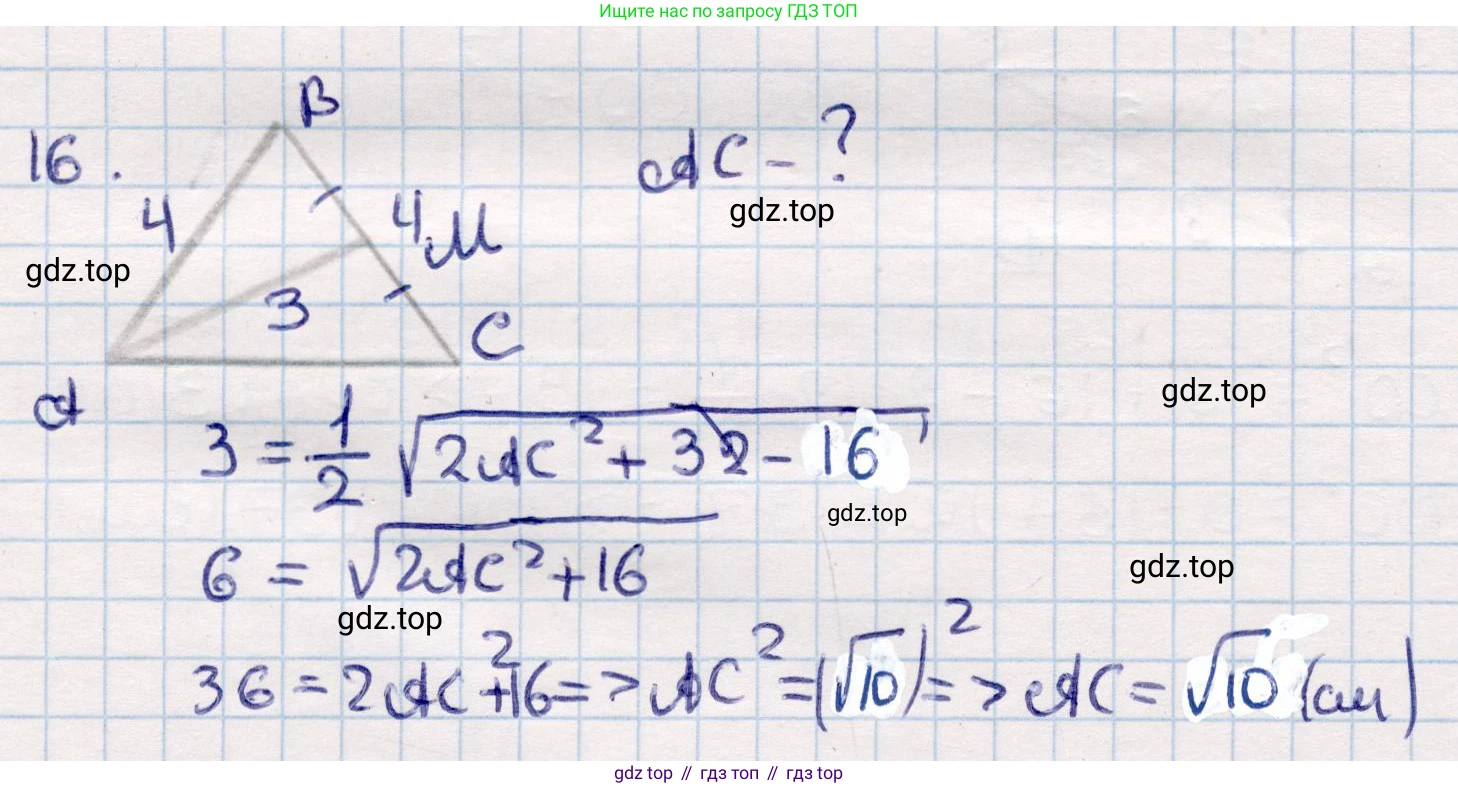 Ищите нас по запросу ГДЗ ТОП
B
16.
AC - ?
4
4
M
gdz.top
gdz.top
3
C
A
gdz.top
3 = 1/2 √(2AC² + 32 - 16)
gdz.top
6 = √(2AC² + 16)
gdz.top
gdz.top
36 = 2AC² + 16 => AC² = (√10)² => AC = √10 (см)
gdz top // гдз топ // гдз top